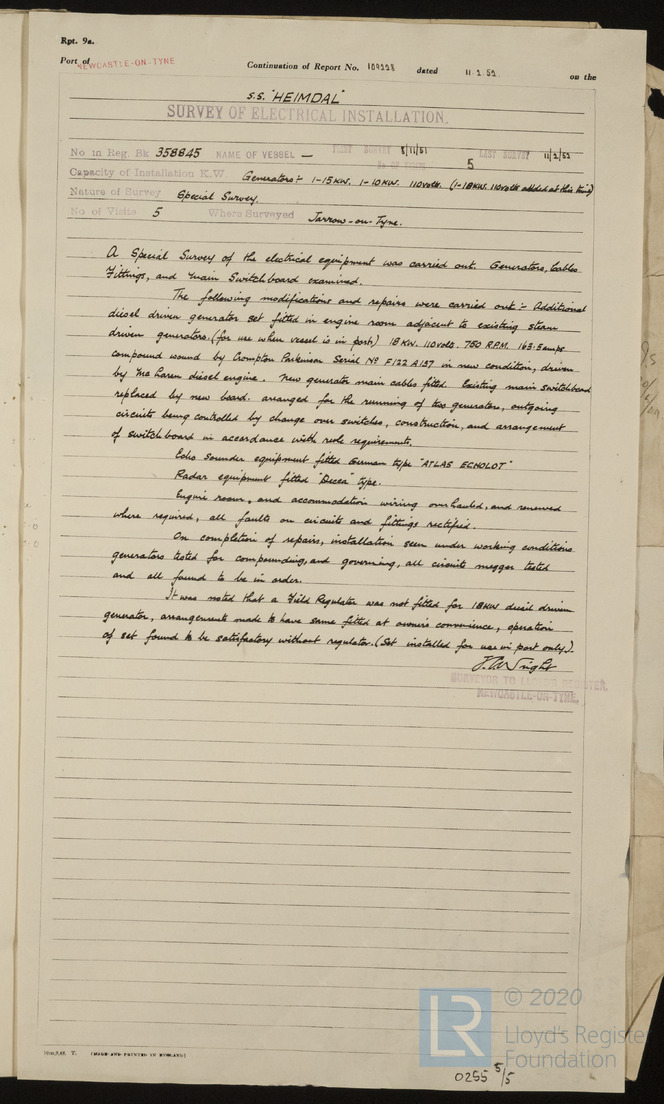 Rpt. 9a.
Port of NEWCASTLE-ON-TYNE
Continuation of Report No. 109228 dated 11.2.52. on the
S.S. "HEIMDAL"
SURVEY OF ELECTRICAL INSTALLATION.
No in Reg. Bk 358845 NAME OF VESSEL — FIRST SURVEY 8/11/51 No OF VISITS 5 LAST SURVEY 11/2/52
Capacity of Installation K.W. Generators:- 1-15KW. 1-10KW. 110 volts. (1-18KW. 110 volts added at this time)
Nature of Survey Special Survey.
No of Visits 5 Where Surveyed Jarrow-on-Tyne.
A Special Survey of the electrical equipment was carried out. Generators, Cables
Fittings, and Main Switchboard examined.
The following modifications and repairs were carried out:- Additional
diesel driven generator set fitted in engine room adjacent to existing steam
driven generators. (for use when vessel is in port) 18 KW. 110 volts. 750 R.P.M. 163.5 amps
compound wound by Crompton Parkinson Serial No F122 A137 in new condition, driven
by McLaren diesel engine. New generator main cables fitted. Existing main switchboard
replaced by new board. arranged for the running of two generators, outgoing
circuits being controlled by change over switches, construction, and arrangement
of switchboard in accordance with rule requirements.
Echo sounder equipment fitted German type "ATLAS ECHOLOT"
Radar equipment fitted "Decca" type.
Engine room, and accommodation wiring overhauled, and renewed
where required, all faults on circuits and fittings rectified.
On completion of repairs, installation seen under working conditions
generators tested for compounding, and governing, all circuits megger tested
and all found to be in order.
It was noted that a Field Regulator was not fitted for 18KW diesil driven
generator, arrangements made to have same fitted at owners convenience, operation
of set found to be satisfactory without regulator. (Set installed for use in port only).
Wright
SURVEYOR TO LLOYD'S REGISTER,
NEWCASTLE-ON-TYNE.
T. (MADE AND PRINTED IN ENGLAND)
LR © 2020
Lloyd's Register
Foundation
0255 5/5